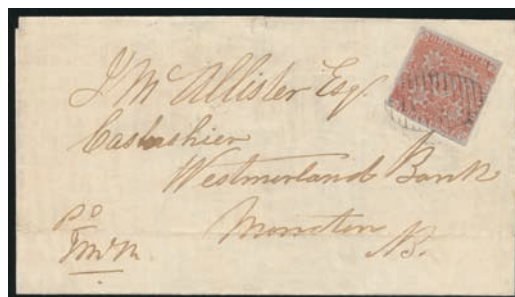 J McAllister Esq.
Cashier
Westmorland Bank
Moncton
N.B.